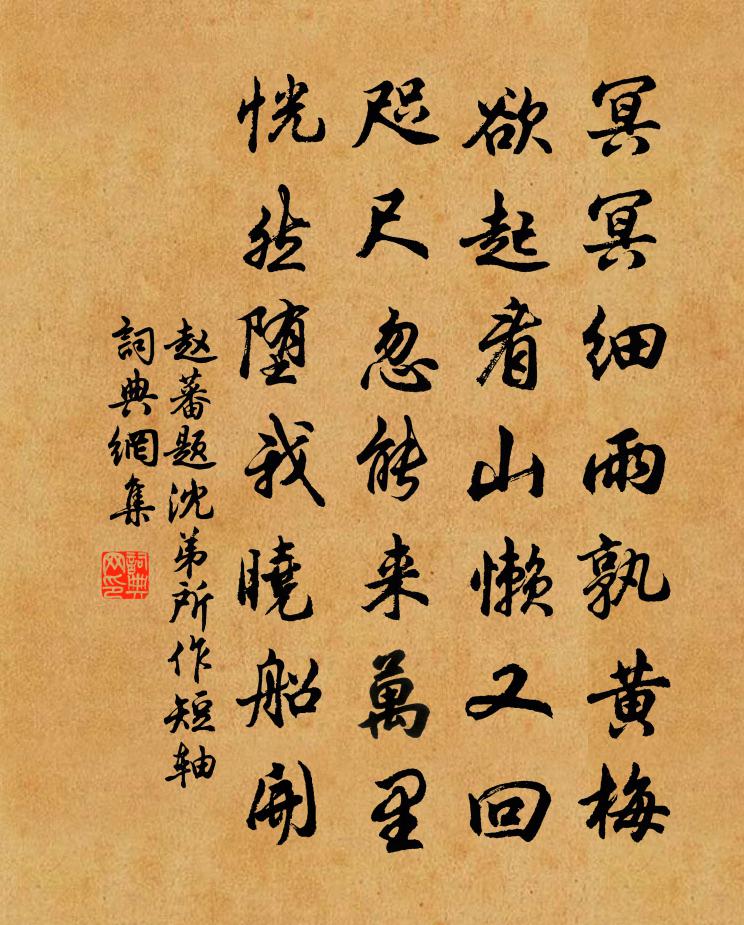 冥冥细雨孰黄梅
欲起看山懒又回
咫尺忽能来萬里
恍然堕我曉船開
赵蕃题沈弟所作短轴
詞典網集
詞典网印